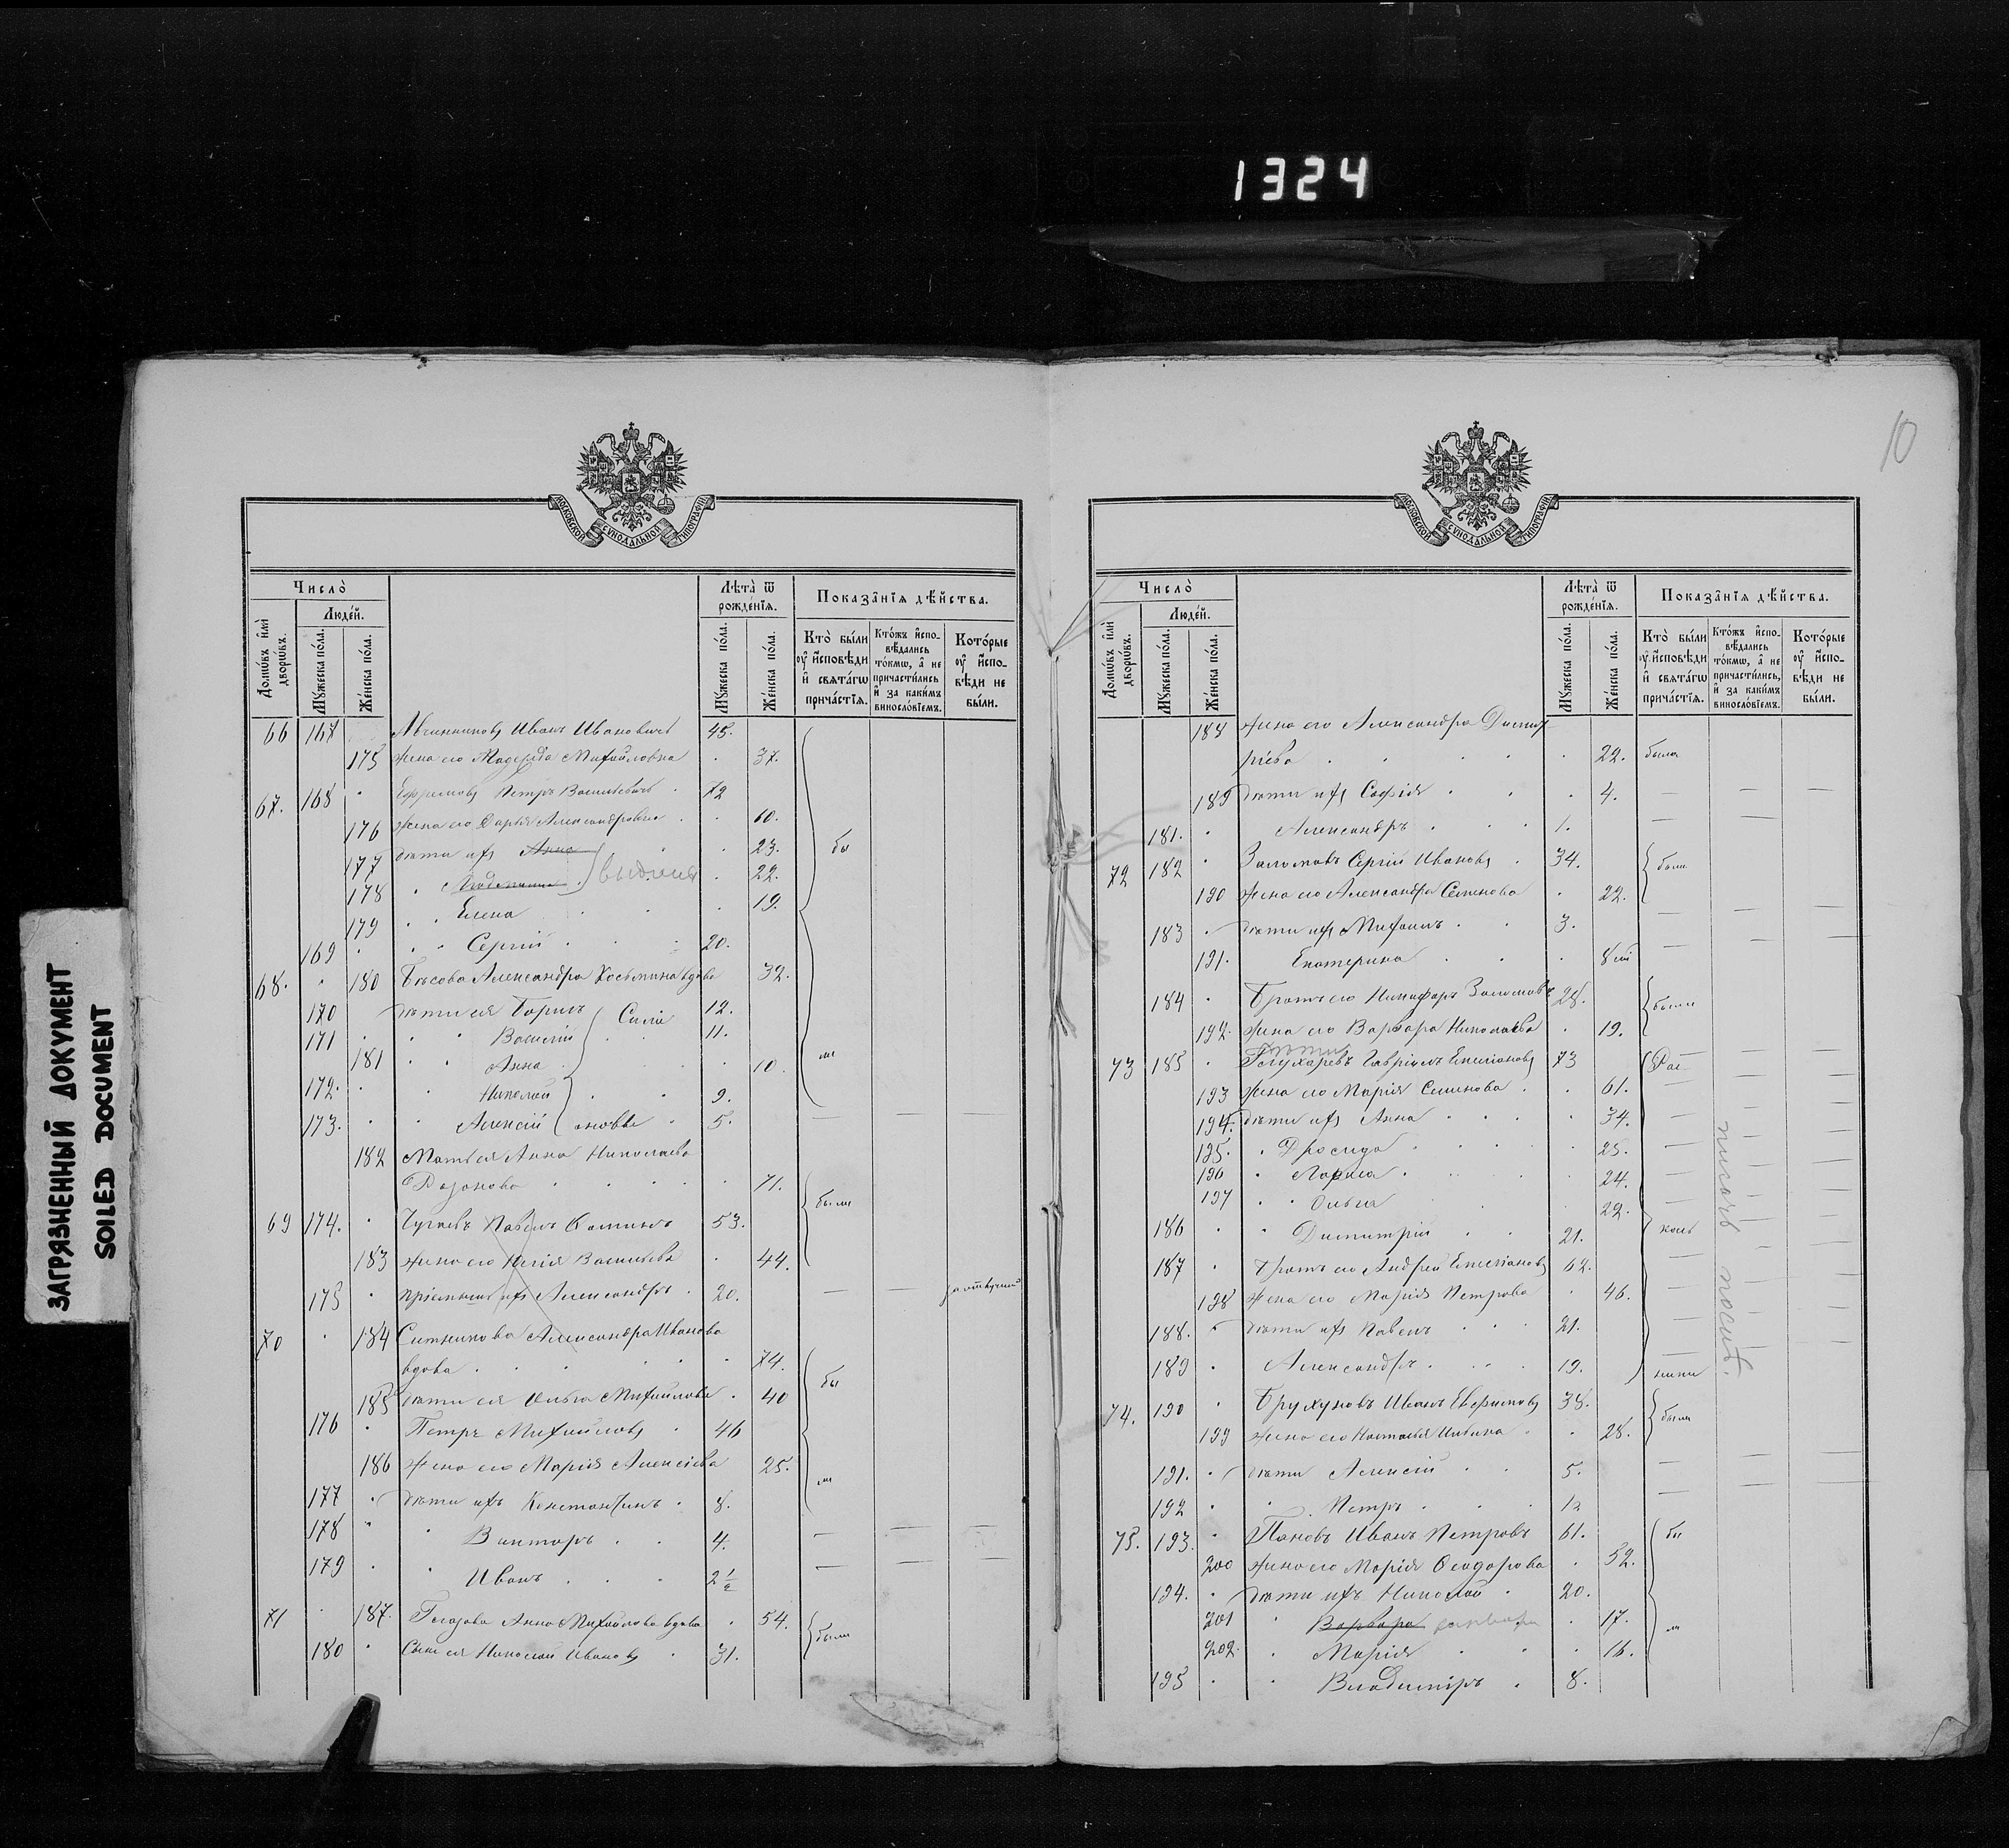 1324
ЗАГРЯЗНЕННЫЙ ДОКУМЕНТ
SOILED DOCUMENT
МОСКОВСКОЙ СѴНОДАЛЬНОЙ ТИПОГРАФІИ
Число̀
Людéй.
Домѡ́въ и҆лѝ дворѡ́въ.
Мꙋ́жеска по́ла.
Же́нска по́ла.
Лѣта̀ ѿ рожде́нїѧ.
Мꙋ́жеска по́ла.
Же́нска по́ла.
Показа̑нїѧ дѣ́йства.
Кто̀ бы́ли
ᲂу҆ и҆́сповѣди
и҆ свѧта́гѡ
прича́стїѧ.
Кто́жъ и҆спо-
вѣ́дались
то́кмѡ, а҆ не
причасти́лись
и҆ за каки́мъ
виносло́вїемъ.
Кото́рые
ᲂу҆ и҆спо-
вѣди не
бы́ли.
66 167 Иванъ Ивановичъ 45.
175 жена его Надежда Михайловна 37.
67. 168 Ефремовъ Петръ Васильевичъ 72
176 жена его Дарья Александровна 60.
177 дѣти ихъ Анна 23.
178 22.
179 Елена 19.
169 Сергій 20.
бы
68. 180 Александра Косьмина вдова 32.
170 дѣти ея Борисъ 12.
171 Василій 11.
181 Анна 10.
172. Николай 9.
173. Алексій 5.
ли
182 Мать ея Анна Николаева
71.
были
69 174. Павелъ 53.
183 жена его Васильева 44.
175 пріемышъ ихъ Александръ 20.
70 184 Ситникова Александра Иванова
вдова 74.
бы
185 дѣти ея Ольга Михайлова 40
176 Петръ Михайловъ 46
186 жена его Марія Алексіева 25.
ли
177 дѣти ихъ Константинъ 8.
178 Викторъ 4.
179 Иванъ 2 1/2
71 187. Анна Михайлова вдова 54.
были
180 Сынъ ея Николай Ивановъ 31.
10
МОСКОВСКОЙ СѴНОДАЛЬНОЙ ТИПОГРАФІИ
Число̀
Людéй.
Домѡ́въ и҆лѝ дворѡ́въ.
Мꙋ́жеска по́ла.
Же́нска по́ла.
Лѣта̀ ѿ рожде́нїѧ.
Мꙋ́жеска по́ла.
Же́нска по́ла.
Показа̑нїѧ дѣ́йства.
Кто̀ бы́ли
ᲂу҆ и҆́сповѣди
и҆ свѧта́гѡ
прича́стїѧ.
Кто́жъ и҆спо-
вѣ́дались
то́кмѡ, а҆ не
причасти́лись,
и҆ за каки́мъ
виносло́вїемъ.
Кото́рые
ᲂу҆ и҆спо-
вѣди не
бы́ли.
188 жена его Александра Димит
ріева 22. была
189 дѣти ихъ Софія 4.
181. Александръ 1.
72 182 Заломовъ Сергій Ивановъ 34.
были
190 жена его Александра Семенова 22.
183 дѣти ихъ Михаилъ 3.
191. Екатерина
184 Братъ его Никифоръ Заломовъ 28.
были
192. жена его Варвара Николаева 19.
73 185 Глухаревъ Гавріилъ Емеліановъ 73
Рас
193 жена его Марія Семенова 61.
194. дѣти ихъ Анна 34.
195. Дросида 25.
196 Лариса 24.
197 Ольга 22.
186 Димитрій 21.
коль
187 Братъ его Андрей Емеліановъ 62.
198 жена его Марія Петрова 46.
188. дѣти ихъ Павелъ 21.
189 Александръ 19.
ники
писать послѣ.
74. 190 Брухуновъ Иванъ Евфимовъ 38.
были
199 жена его Настасья 28.
191. дѣти Алексій 5.
192 Петръ
75. 193. Пановъ Иванъ Петровъ 61.
бы
200 жена его Марія Ѳеодорова 52.
194. дѣти ихъ Николай 20.
201 Варвара 17.
ли
202. Марія 16.
195 Владиміръ 8.